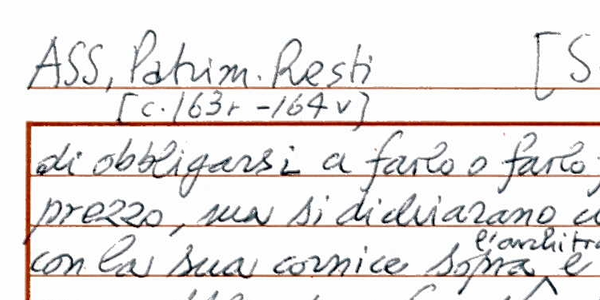 ASS, Patrim. Resti [S
[c. 163r - 164v]
di obbligarsi a farlo o farlo
prezzo, ma si dichiarano
l'architra
con la sua cornice sopra e